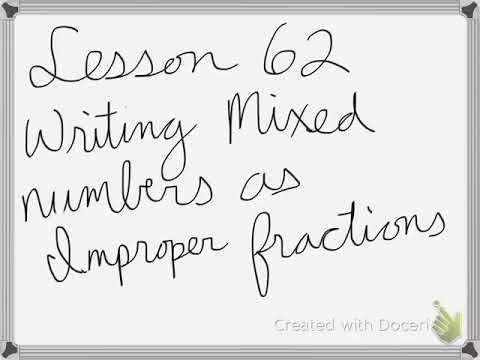 Lesson 62
Writing Mixed
numbers as
Improper fractions
Created with Doceri